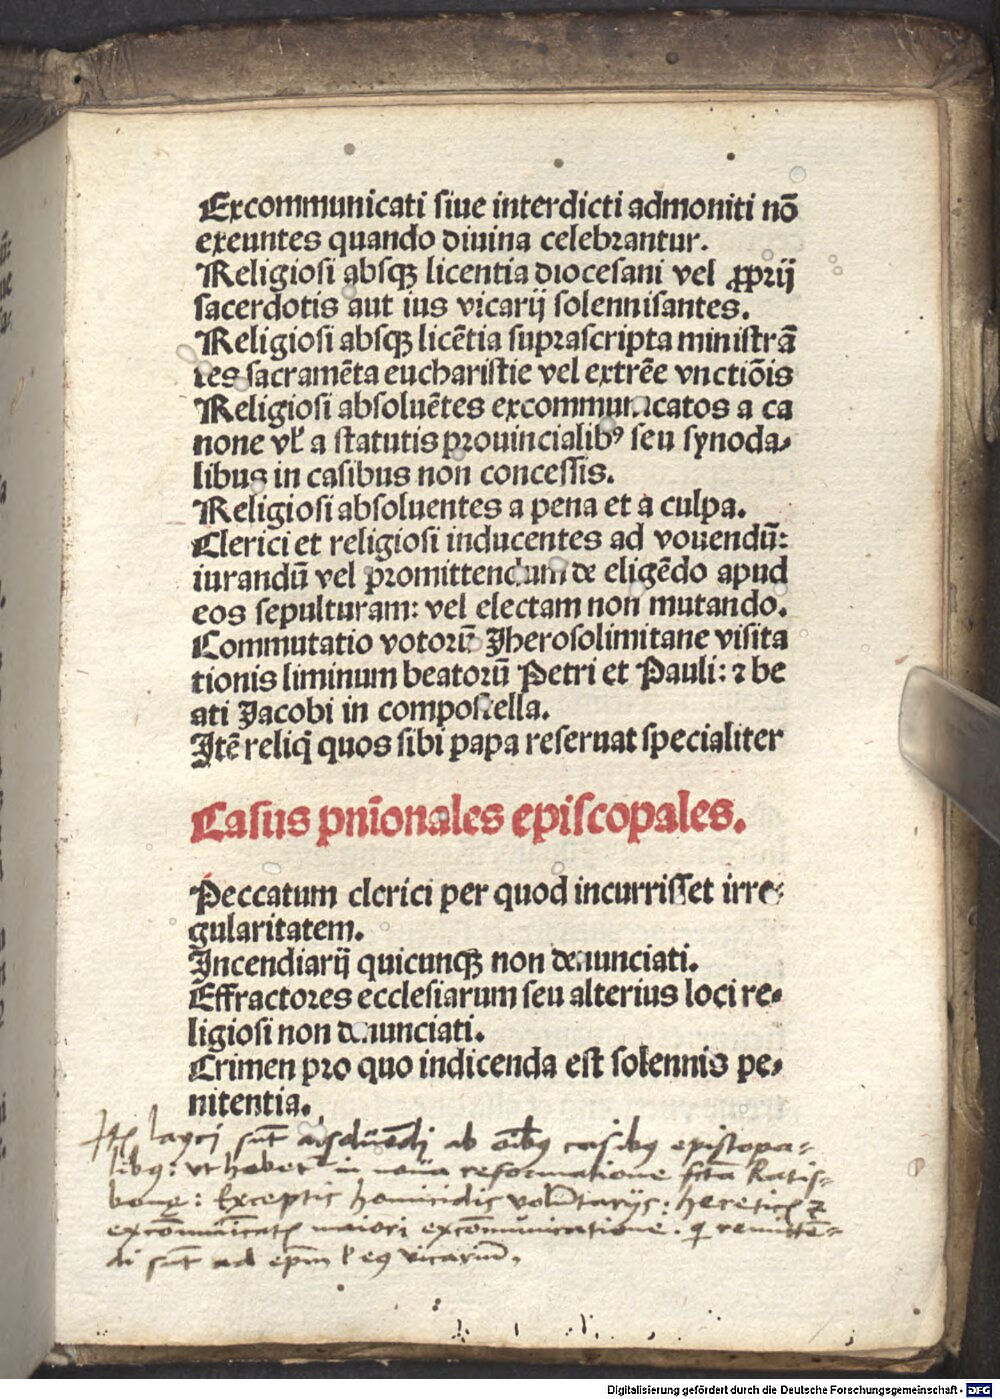 Excommunicati siue interdicti admoniti nō
exeuntes quando diuina celebrantur.
Religiosi absqꝫ licentia diocesani vel ꝓprij
sacerdotis aut ius vicarij solennisantes.
Religiosi absqꝫ licētia suprascripta ministrā
tes sacramēta eucharistie vel extrēe vnctiōis
Religiosi absoluētes excommunicatos a ca
none vł a statutis prouincialibꝰ seu synoda⸗
libus in casibus non concessis.
Religiosi absoluentes a pena et a culpa.
Clerici et religiosi inducentes ad vouendū:
iurandū vel promittendum de eligēdo apud
eos sepulturam: vel electam non mutando.
Commutatio votorū Jherosolimitane visita
tionis liminum beatorū Petri et Pauli: ⁊ be
ati Jacobi in compostella.
Jtē reliq̄ quos sibi papa reseruat specialiter
Casus pnīonales episcopales.
Peccatum clerici per quod incurrisset irre⸗
gularitatem.
Jncendiarij quicunqꝫ non denunciati.
Effractores ecclesiarum seu alterius loci re⸗
ligiosi non denunciati.
Crimen pro quo indicenda est solennis pe⸗
nitentia.
layci sūt absoluēdi ab oībꝰ casibꝰ epistopa-
libꝰ: vt habet in noua reformatione fcta Ratis-
bonę: Exceptis homicidis volūtarijs: hereticꝭ ⁊
excōmūicatꝭ maiori excōmunicatione. q̄ remittē-
di sūt ad epm̄ ł eꝰ vicariū.
Digitalisierung gefördert durch die Deutsche Forschungsgemeinschaft - DFG